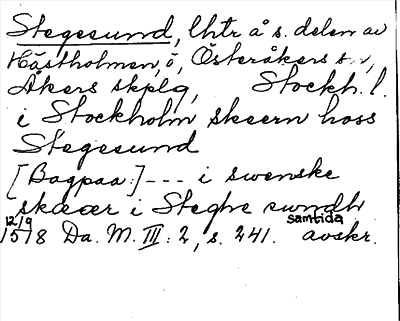 Stegesund, lhtr å s. delen av
Hästholmen, ö, Österåkers s:n,
Åkers skplg, Stockh. l.
i Stockholm skeern hoss
Stegesund
[Bagpaa:] --- i swenske
skæær i Steghe swndh
12/9 samtida
1518 Da. M. III: 2, s. 241. avskr.